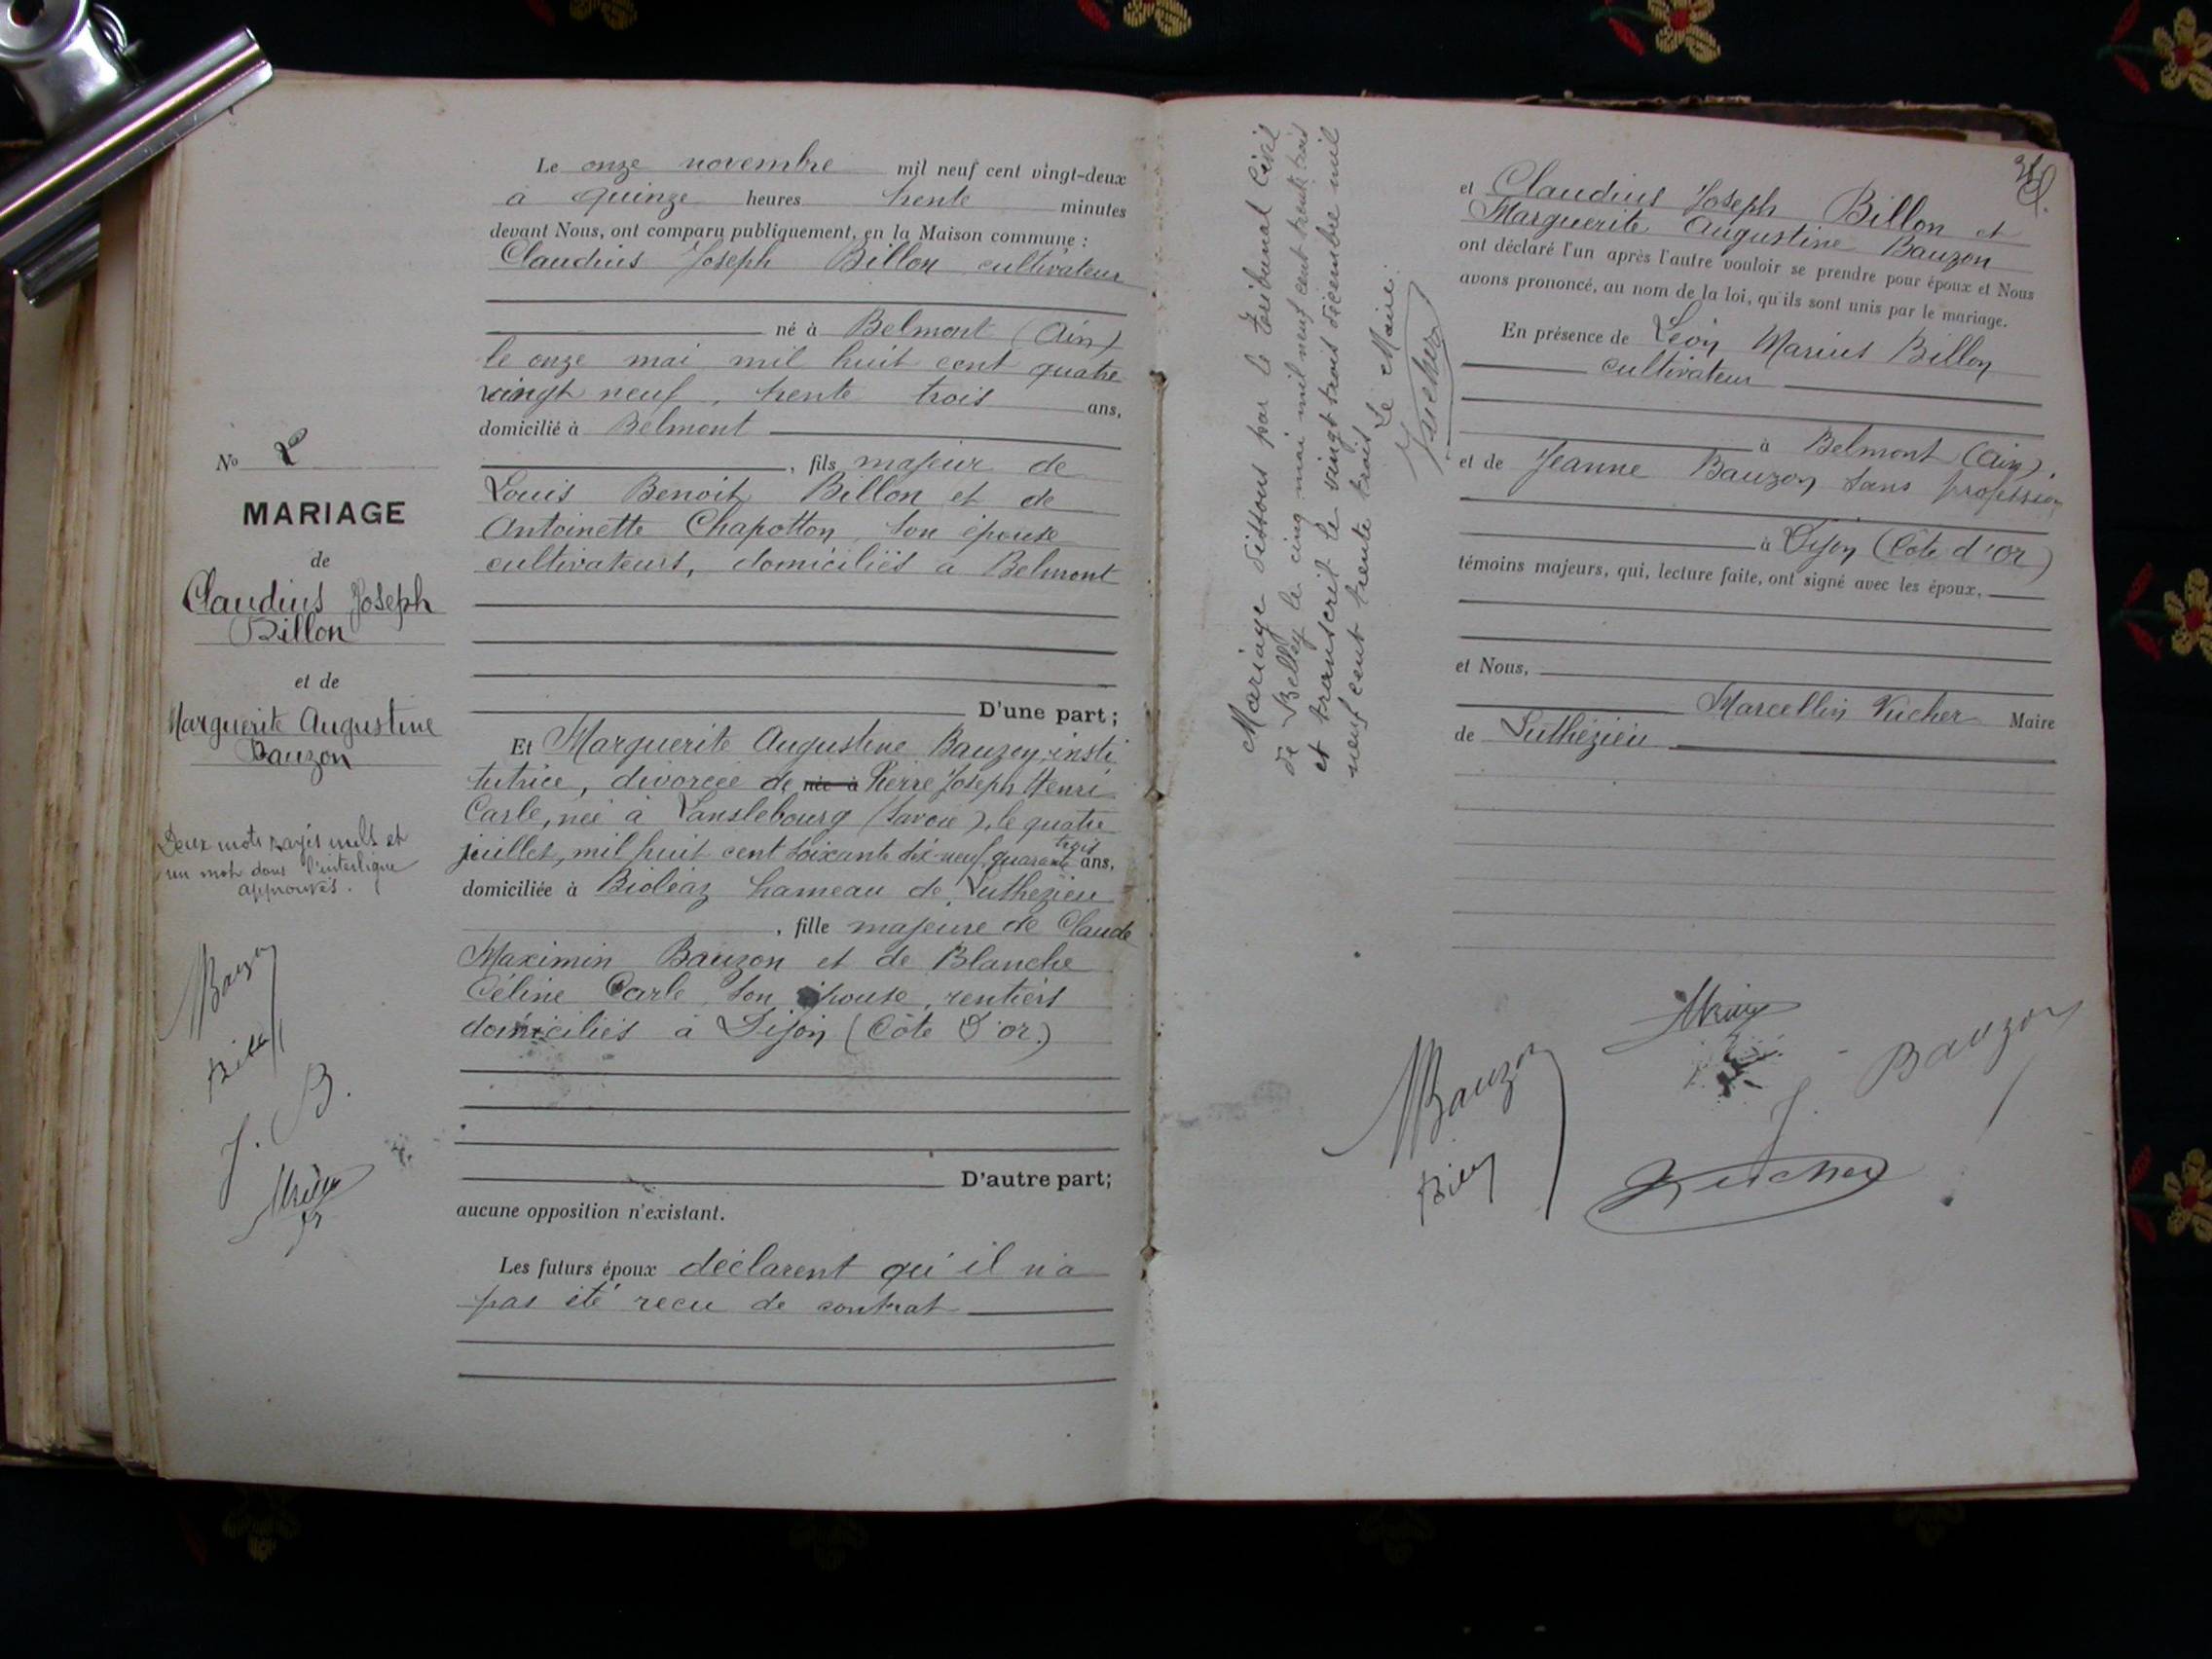 Le onze novembre mil neuf cent vingt-deux
à quinze heures trente minutes
devant Nous, ont comparu publiquement, en la Maison commune :
Claudius Joseph Billon cultivateur
né à Belmont (Ain)
le onze mai mil huit cent quatre
vingt neuf, trente trois ans,
domicilié à Belmont
, fils majeur de
Louis Benoit Billon et de
Antoinette Chapotton, son épouse
cultivateurs, domiciliés à Belmont
D'une part ;
No 2
MARIAGE
de
Claudius Joseph
Billon
et de
Marguerite Augustine
Bauzon
Deux mots rayés nuls et
un mot dans l'interligne
approuvés.
Bauzon
J. B.
Et Marguerite Augustine Bauzon, insti
tutrice, divorcée de née à Pierre Joseph Henri
Carle, née à Lanslebourg (Savoie), le quatre
juillet, mil huit cent soixante dix-neuf, quarante trois ans,
domiciliée à Bioléaz hameau de Luthézieu
, fille majeure de Claude
Maximin Bauzon et de Blanche
Céline Carle, son épouse, rentiers
domiciliés à Dijon (Côte d'or.)
D'autre part;
aucune opposition n'existant.
Les futurs époux déclarent qu'il n'a
pas été reçu de contrat
Mariage dissous par le Tribunal Civil
de Belley le cinq mai mil neuf cent trente trois
et transcrit le vingt trois décembre mil
neuf cent trente trois Le Maire :
Vucher
et Claudius Joseph Billon et
Marguerite Augustine Bauzon
ont déclaré l'un après l'autre vouloir se prendre pour époux et Nous
avons prononcé, au nom de la loi, qu'ils sont unis par le mariage.
En présence de Léon Marius Billon
cultivateur
à Belmont (Ain).
et de Jeanne Bauzon sans profession
à Dijon (Côte d'Or)
témoins majeurs, qui, lecture faite, ont signé avec les époux,
et Nous,
Marcellin Vucher Maire
de Luthézieu
Bauzon
J. Bauzon
Vucher